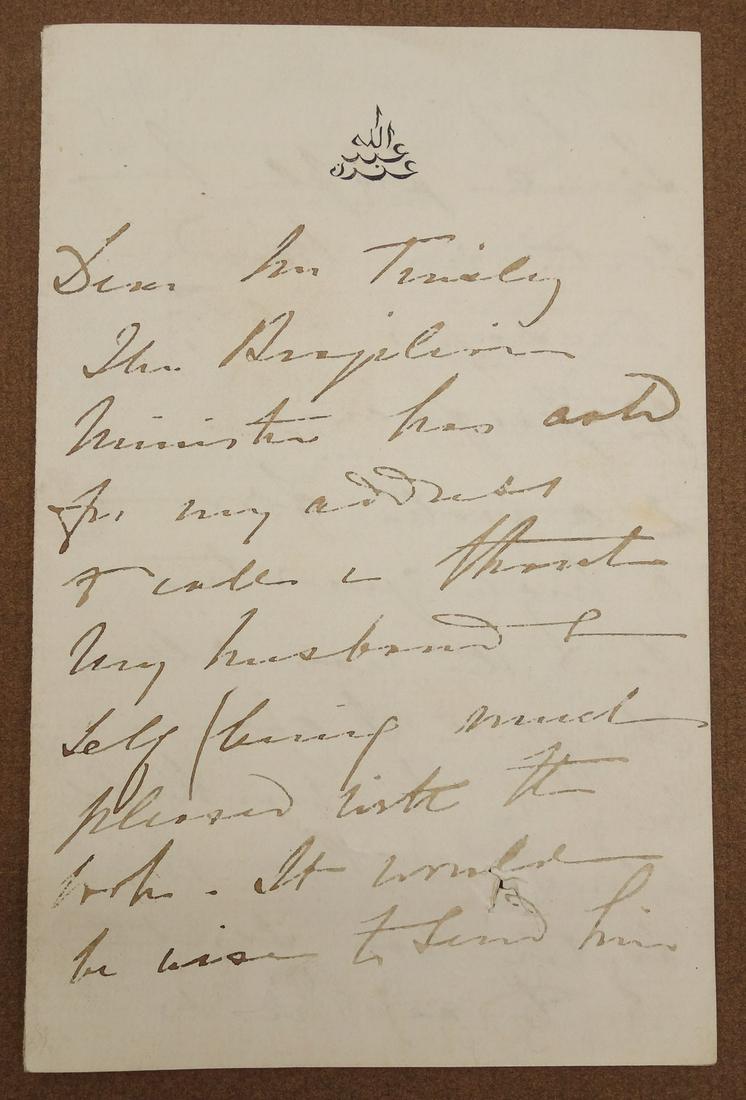 الله
عبد
Dear Mr Tinsley
The Brazilian
Minister has asked
for my address
& calls to thank
my husband &
self (being much
pleased with the
book. It would
be wise to send him